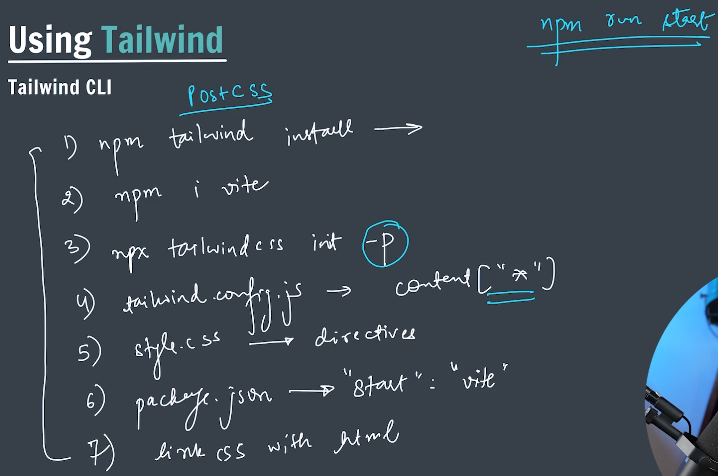 npm run start
Using Tailwind
Tailwind CLI
PostCSS
1) npm tailwind install →
2) npm i vite
3) npx tailwindcss init -p
4) tailwind.config.js → content ["*"]
5) style.css → directives
6) package.json → "start" : "vite"
7) link css with html